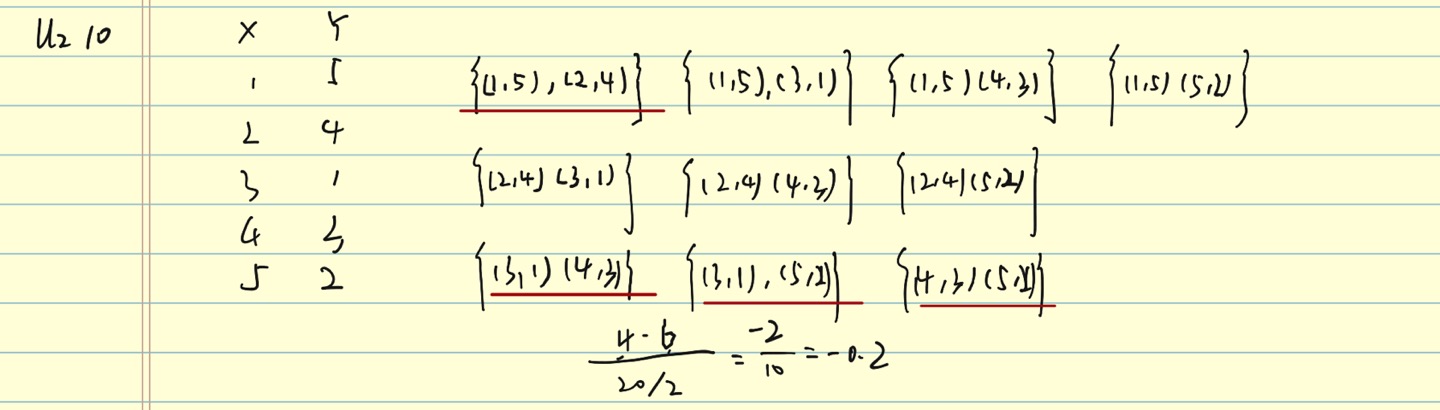 U2 10
X Y
1 5
2 4
3 1
4 3
5 2
{(1,5), (2,4)} {(1,5), (3,1)} {(1,5) (4,3)} {(1,5) (5,2)}
{(2,4) (3,1)} {(2,4) (4,3)} {(2,4) (5,2)}
{(3,1) (4,3)} {(3,1), (5,2)} {(4,3) (5,2)}
4-6 / 20/2 = -2/10 = -0.2